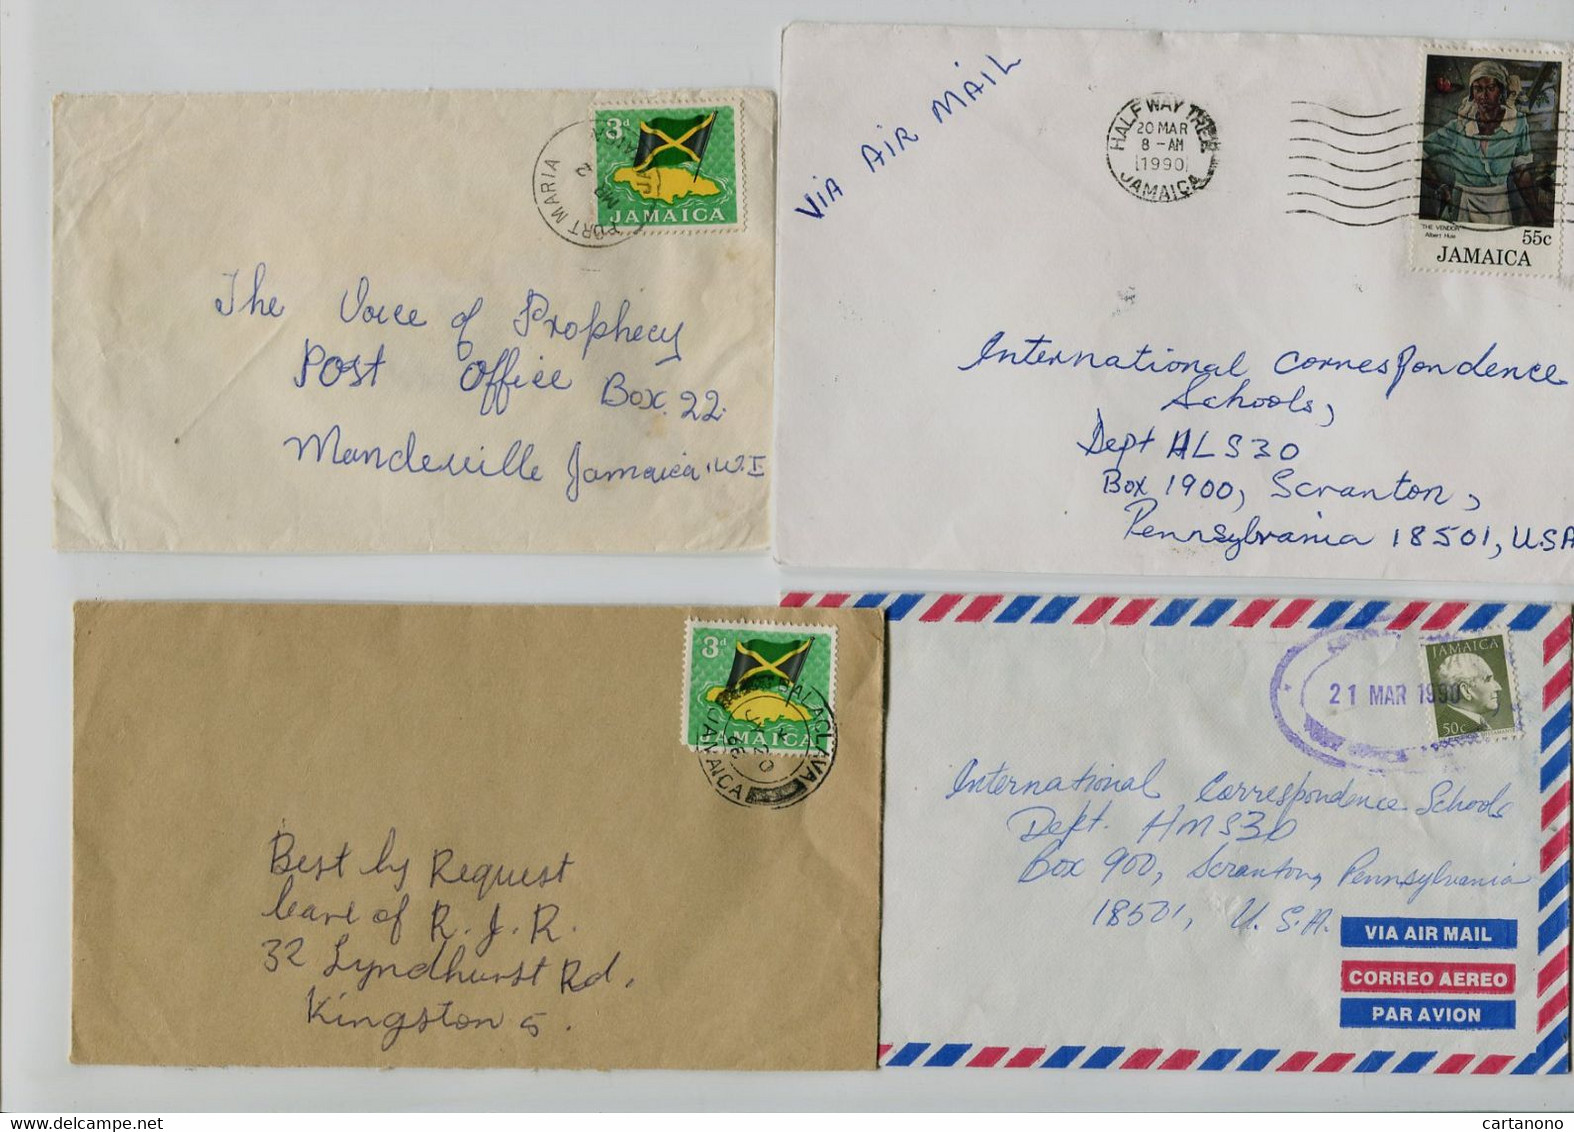 3d
JAMAICA
PORT MARIA
The Voice of Prophecy
Post Office Box 22
Mandeville Jamaica W.I
VIA AIR MAIL
HALF WAY TREE
20 MAR
8 - AM
1990
JAMAICA
"THE VENDOR"
Albert Huie
55c
JAMAICA
International Correspondence
Schools,
Dept HLS30
Box 1900, Scranton,
Pennsylvania 18501, U.S.A
3d
JAMAICA
BALACLAVA
JA 20
66
JAMAICA
Best by Request
care of R.J.R.
32 Lyndhurst Rd.
Kingston 5.
JAMAICA
50c
21 MAR 1990
International Correspondence Schools
Dept. HMS30
Box 900, Scranton, Pennsylvania
18501, U.S.A.
VIA AIR MAIL
CORREO AEREO
PAR AVION
delcampe.net
cartanono